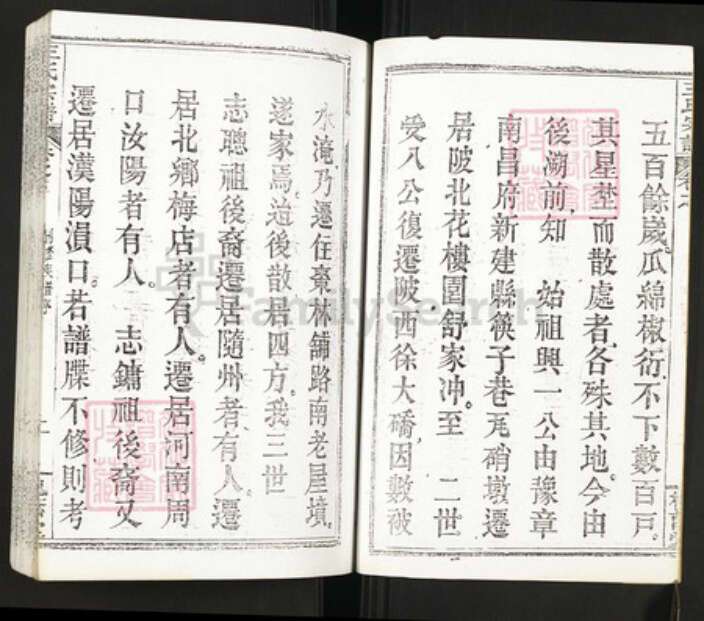 五百餘歲。瓜綿椒衍。不下數百戶。
其星埜而散處者。各殊其地。今由
後溯前。知 始祖興一公由豫章
南昌府新建縣筷子巷瓦硝墩遷
居陂北花樓園舒家冲。至 二世
受八公復遷陂西徐大磻。因數被
水淹。乃遷住棗林舖路南老屋墳。
遂家焉。迨後散居四方。我三世
志聰祖後裔。遷居隨州者有人。遷
居北鄉梅店者有人。遷居河南周
口汝陽者有人。 志鏞祖後裔。又
遷居漢陽溳口。若譜牒不修。則考
王氏宗譜
FamilySearch